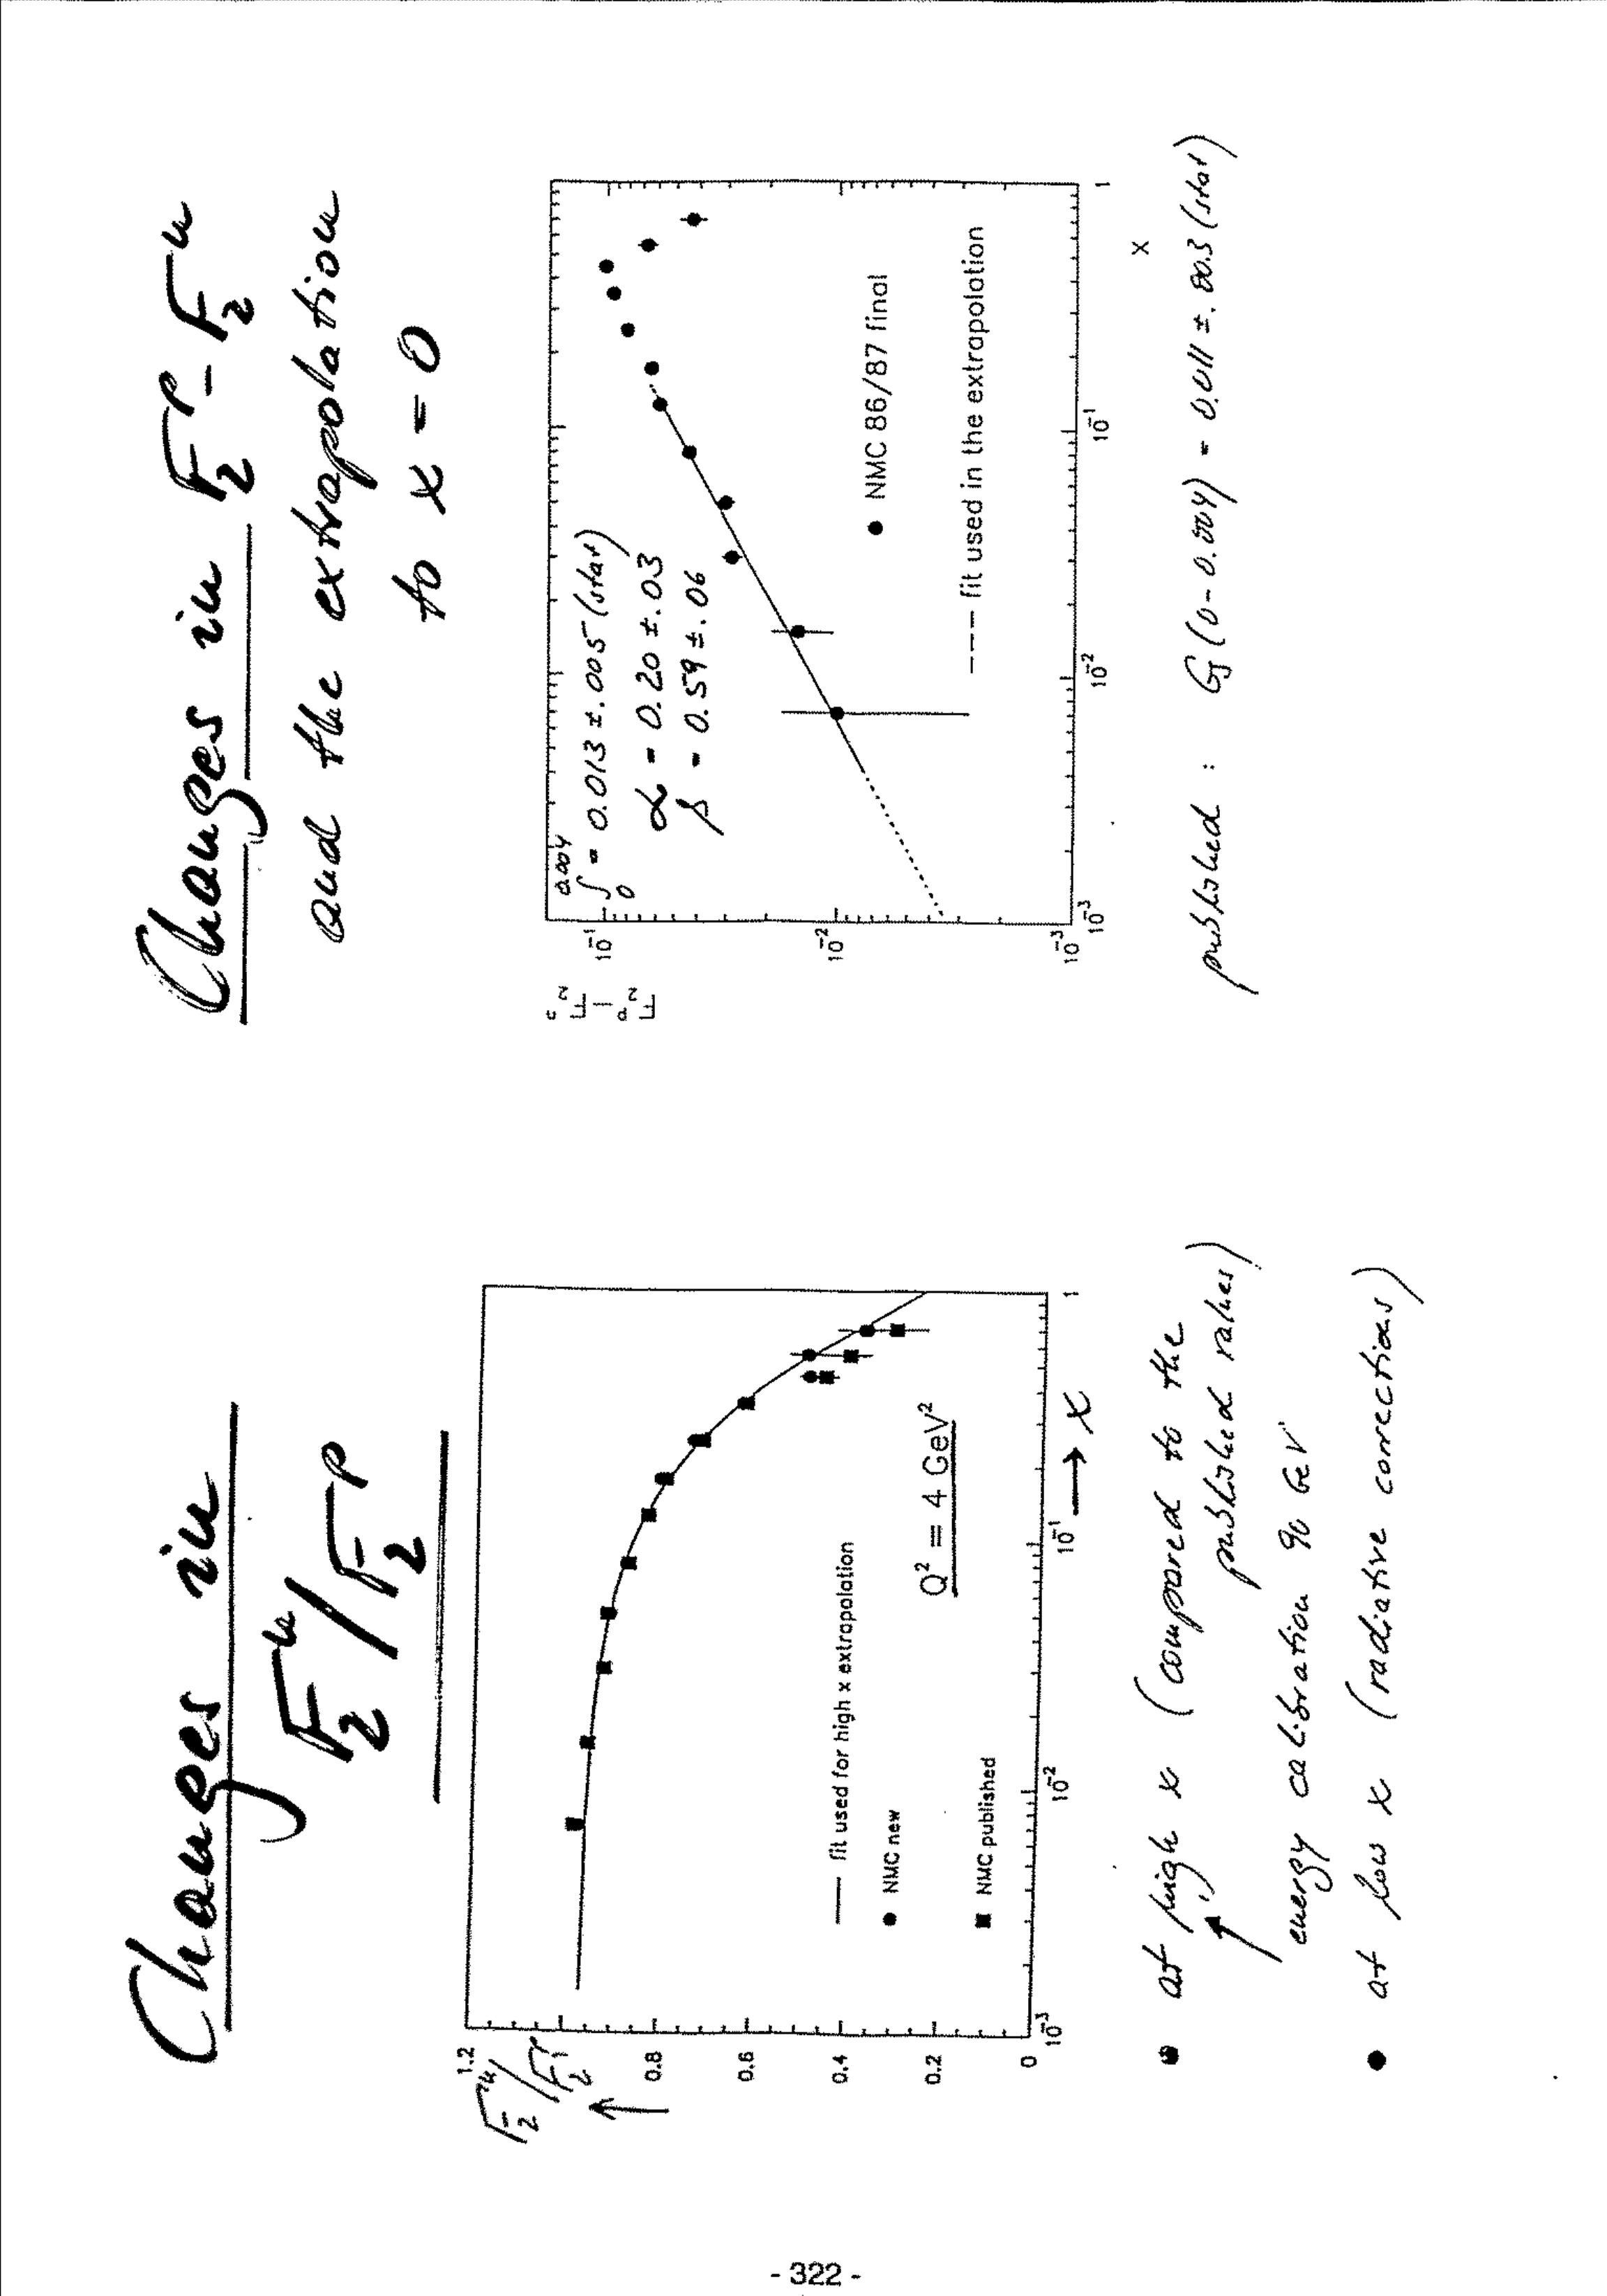 Changes in
F₂ⁿ/F₂ᵖ
1.2
F₂ⁿ/F₂ᵖ
0.8
0.6
0.4
0.2
0
fit used for high x extrapolation
NMC new
NMC published
Q² = 4 GeV²
10⁻³
10⁻²
10⁻¹
1
→ x
● at high x (compared to the
published values)
energy calibration 90 GeV
● at low x (radiative corrections)
Changes in F₂ᵖ - F₂ⁿ
and the extrapolation
to x = 0
F₂ᵖ-F₂ⁿ
10⁻¹
10⁻²
10⁻³
∫₀^0.004 = 0.013 ±.005 (stat)
α = 0.20 ±.03
β = 0.59 ±.06
NMC 86/87 final
--- fit used in the extrapolation
10⁻³
10⁻²
10⁻¹
1
x
published : G (0-0.004) = 0.011 ±.003 (stat)
- 322 -